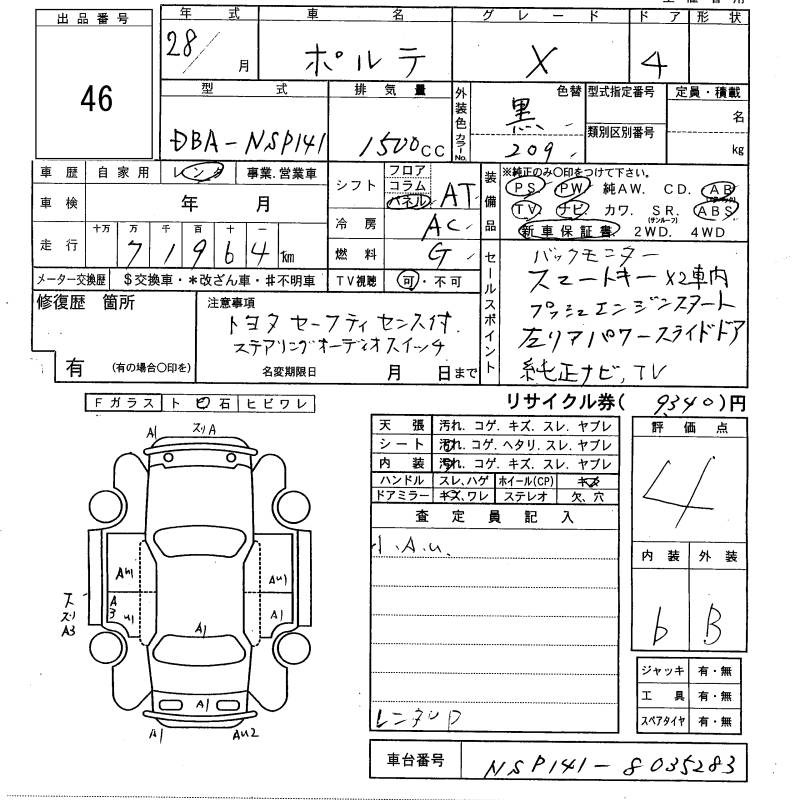 出品番号
46
年 式
28/ 月
車 名
ポルテ
グレード
X
ドア
4
形状
型 式
DBA-NSP141
排気量
1500cc
外装色 カラーNo.
色替
黒
209
型式指定番号
類別区別番号
定員・積載
名
kg
車歴 自家用 レンタ 事業.営業車
車検 年 月
走行 十万 万 千 百 十 一
7 1 9 6 4 Km
メーター交換歴 $交換車・*改ざん車・♯不明車
シフト フロア コラム パネル AT
冷房 AC
燃料 G
TV視聴 可・不可
装備品
※純正のみ〇印をつけて下さい。
PS. PW 純AW. CD. AB (エアバック)
TV. ナビ カワ. SR. (サンルーフ) ABS
新車保証書 2WD. 4WD
セールスポイント
バックモニター
スマートキー×2車内
プッシュエンジンスタート
左リアパワースライドドア
純正ナビ, TV
修復歴 箇所
有 (有の場合〇印を)
注意事項
トヨタセーフティセンス付.
ステアリングオーディオスイッチ
名変期限日 月 日まで
リサイクル券( 9340 )円
Fガラス トビ石 ヒビワレ
天張 汚れ. コゲ. キズ. スレ. ヤブレ
シート 汚れ. コゲ. ヘタリ. スレ. ヤブレ
内装 汚れ. コゲ. キズ. スレ. ヤブレ
ハンドル スレ、ハゲ ホイール(CP) キズ
ドアミラー キズ、ワレ ステレオ 欠、穴
査定員記入
小.A.u.
レンタUP
評価点
4
内装 外装
b B
ジャッキ 有・無
工具 有・無
スペアタイヤ 有・無
A1 スリA
Au1 Au1
A3 u1 A1
スリ
A3
A1
A1
A1 Au2
車台番号 NSP141-8035283